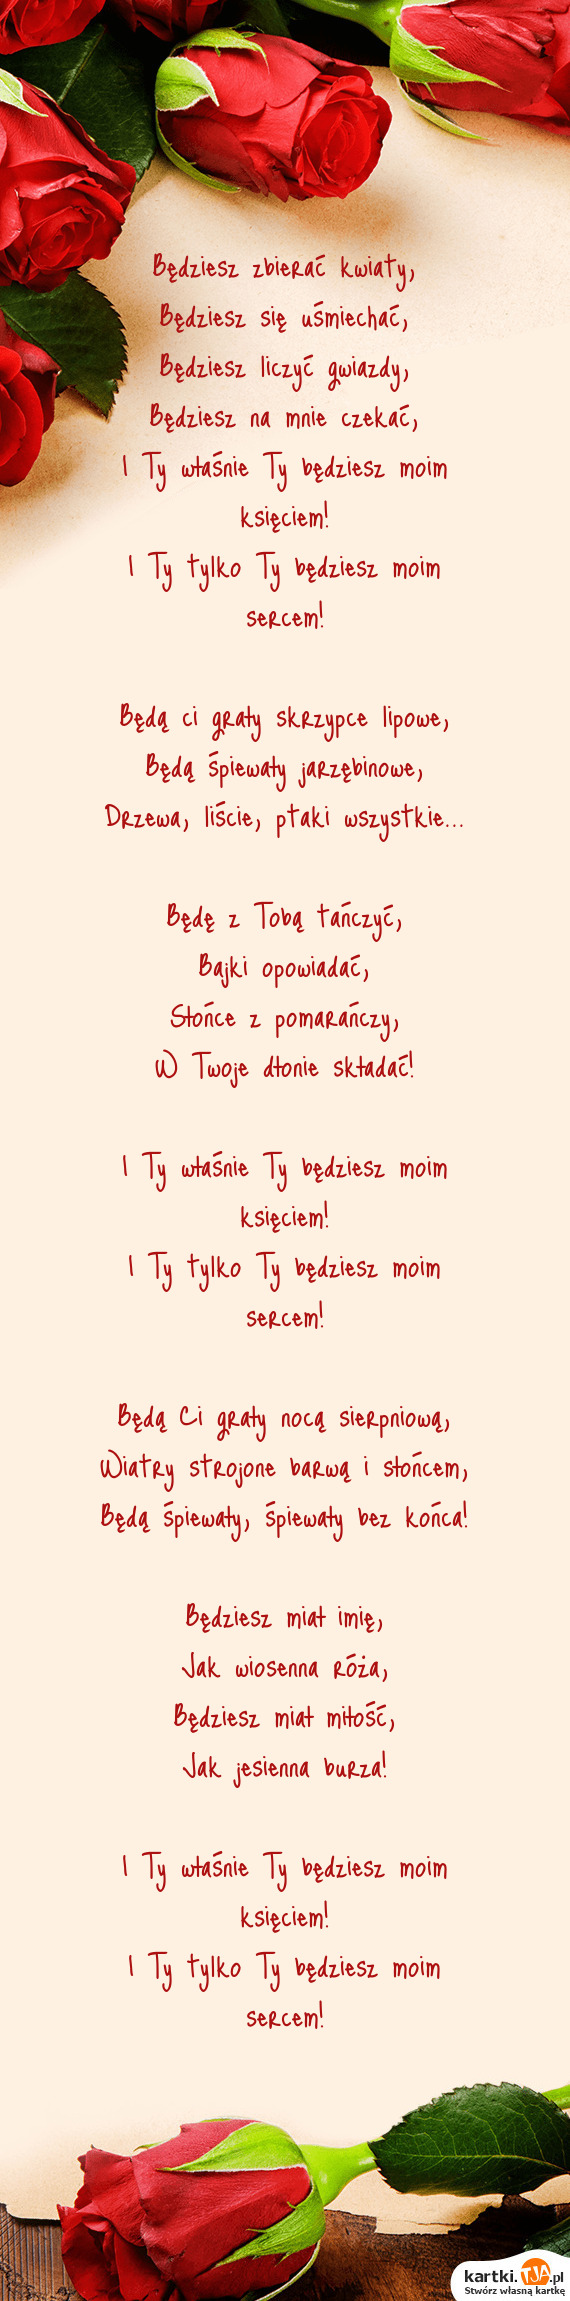 Będziesz zbierać kwiaty,
Będziesz się uśmiechać,
Będziesz liczyć gwiazdy,
Będziesz na mnie czekać,
I Ty właśnie Ty będziesz moim
księciem!
I Ty tylko Ty będziesz moim
sercem!
Będą ci grały skrzypce lipowe,
Będą śpiewały jarzębinowe,
Drzewa, liście, ptaki wszystkie...
Będę z Tobą tańczyć,
Bajki opowiadać,
Słońce z pomarańczy,
W Twoje dłonie składać!
I Ty właśnie Ty będziesz moim
księciem!
I Ty tylko Ty będziesz moim
sercem!
Będą Ci grały nocą sierpniową,
Wiatry strojone barwą i słońcem,
Będą śpiewały, śpiewały bez końca!
Będziesz miał imię,
Jak wiosenna róża,
Będziesz miał miłość,
Jak jesienna burza!
I Ty właśnie Ty będziesz moim
księciem!
I Ty tylko Ty będziesz moim
sercem!
kartki.TJA.pl
Stwórz własną kartkę